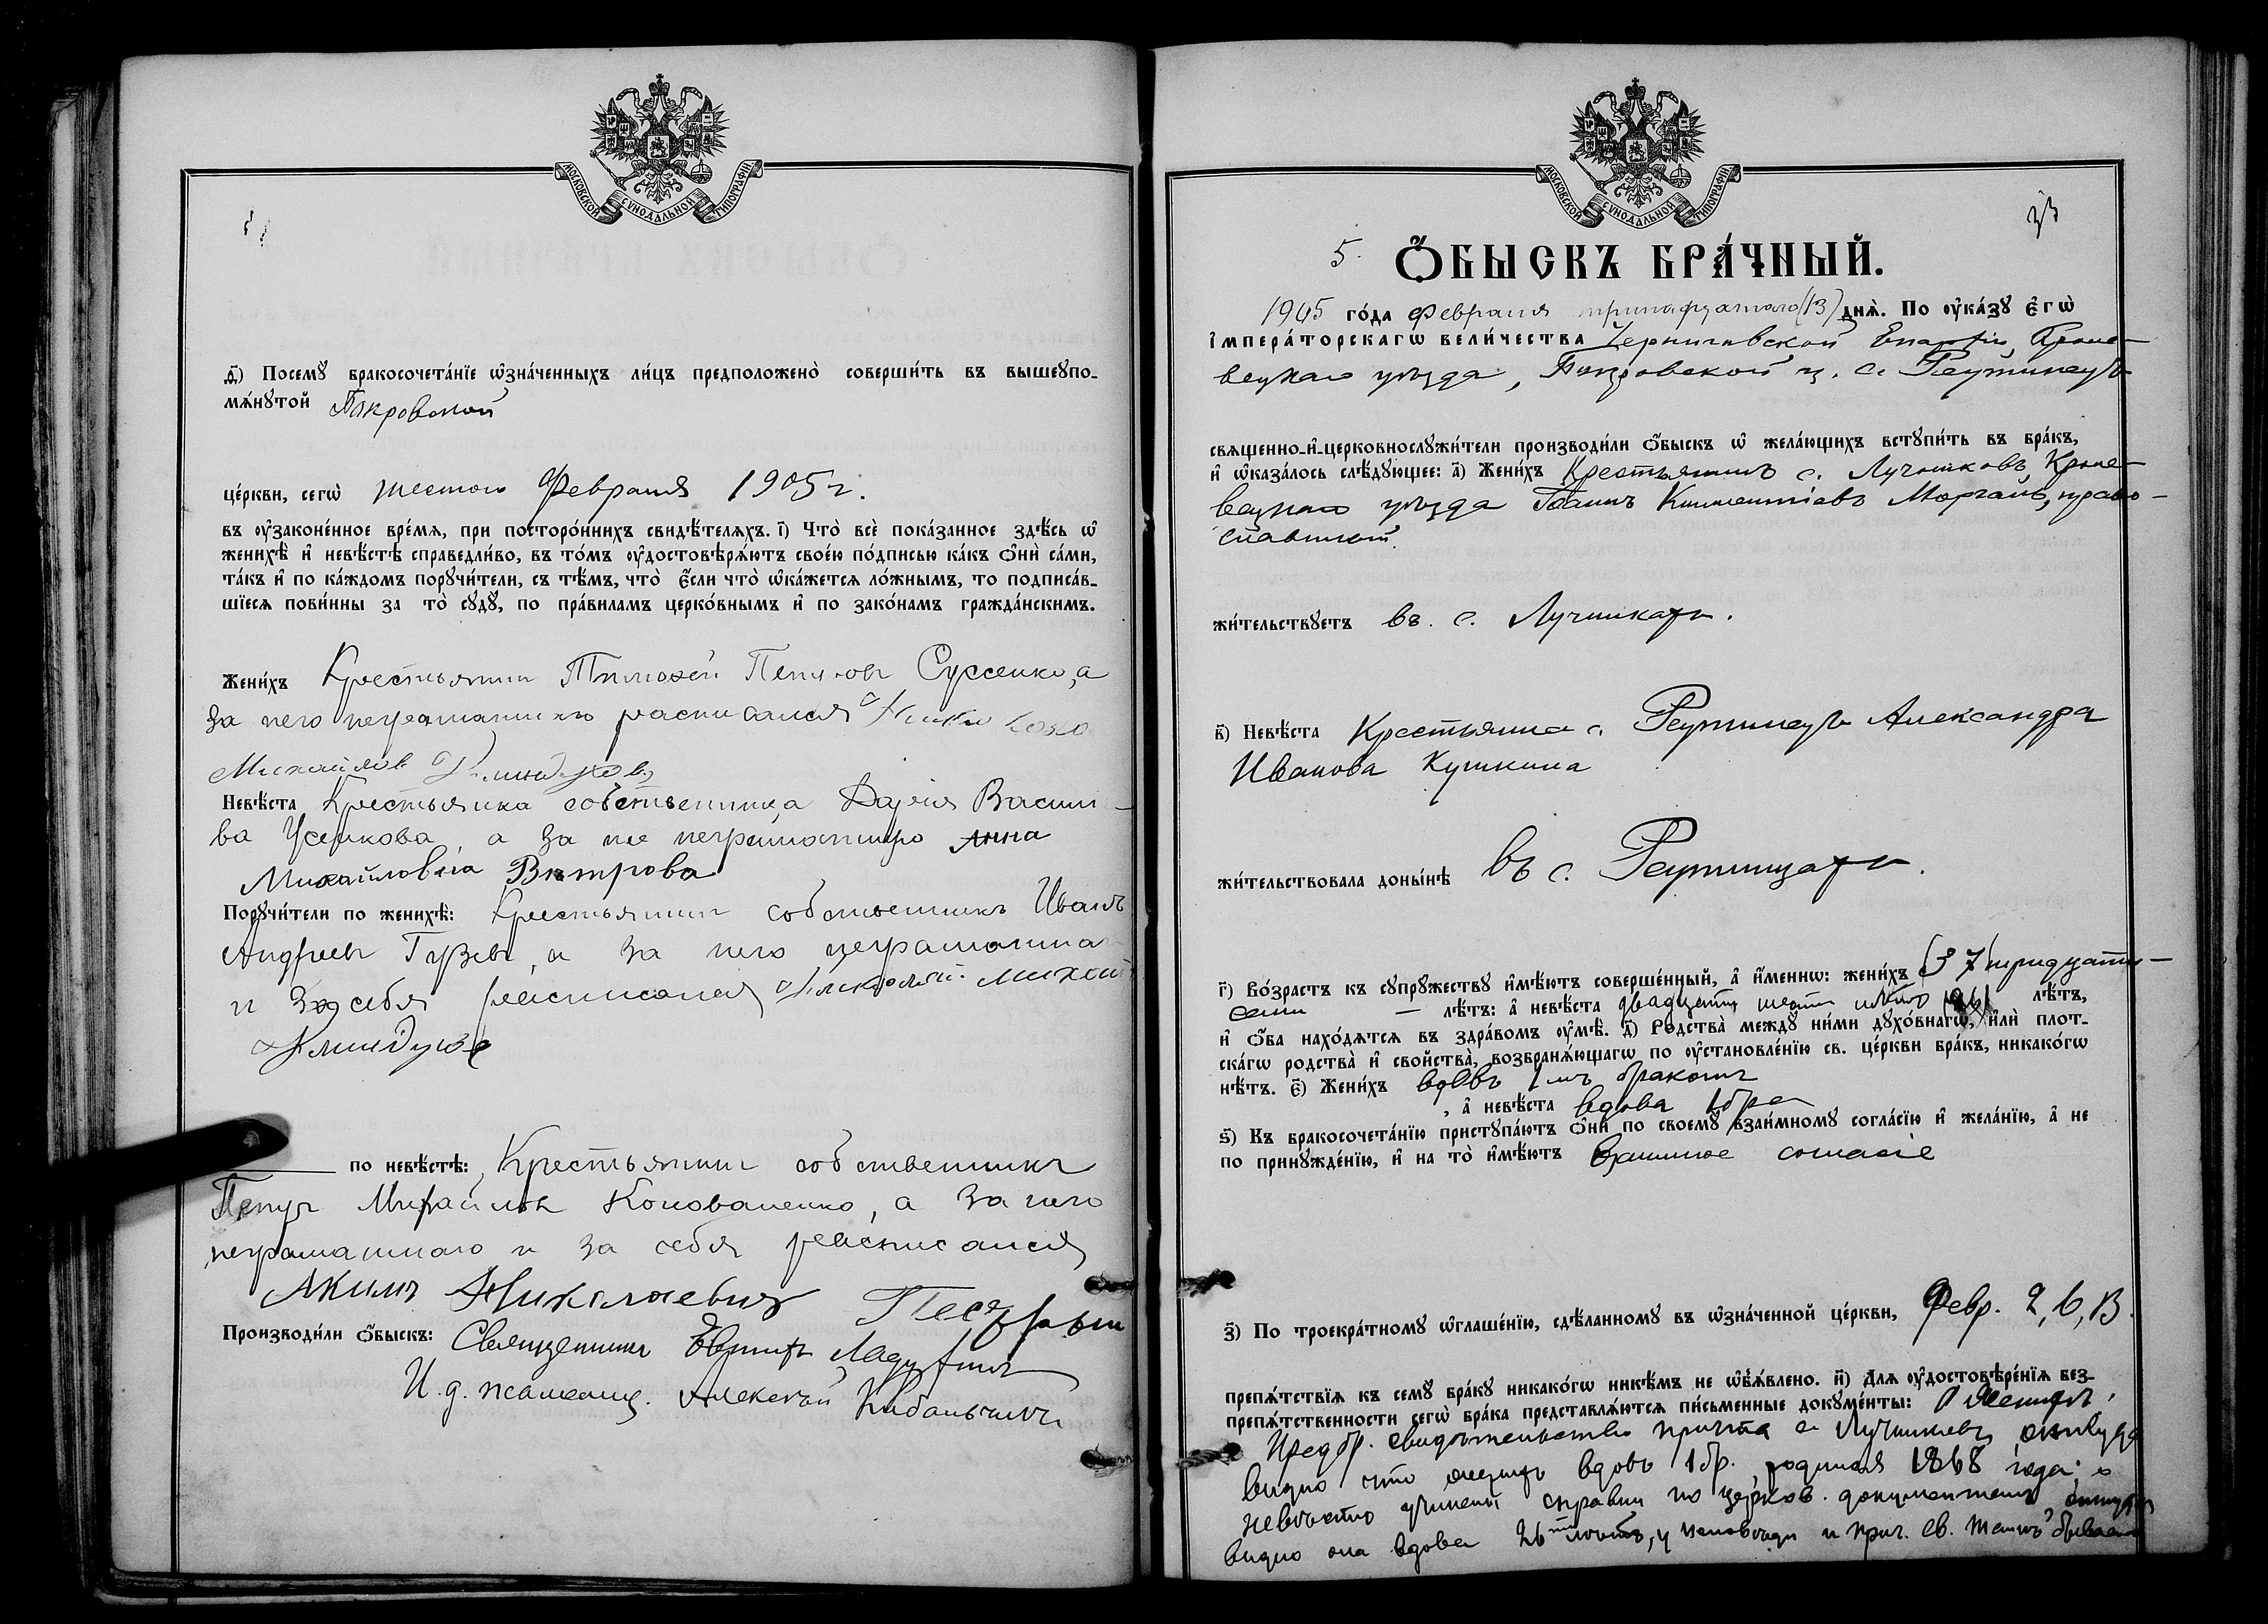 МОСКОВСКОЙ СѴНОДАЛЬНОЙ ТИПОГРАФІИ.
д҃) Посемꙋ бракосочета́нїе ѡ҆зна́ченныхъ ли́цъ предположено̀ соверши́ть въ вышеупо-
мѧ́нꙋтой Покровской
це́ркви, сегѡ̀ шестого Февраля 1905 г.
въ ᲂу҆законе́нное вре́мѧ, при посторо́ннихъ свидѣ́телѧхъ. і҃) Что̀ всѐ пока́занное здѣ́сь ѡ҆
женихѣ̀ и҆ невѣ́стѣ справедли́во, въ то́мъ ᲂу҆достовѣрѧ́ютъ свое́ю по́дписью ка́къ ѻ҆нѝ са́ми,
та́къ и҆ по ка́ждомъ порꙋчи́тели, съ тѣ́мъ, что̀ є҆́сли что̀ ѡ҆ка́жетсѧ ло́жнымъ, то подписа́в-
шїесѧ пови́нны за то̀ сꙋдꙋ̀, по пра́виламъ церко́внымъ и҆ по зако́намъ гражда́нскимъ.
Жени́хъ Крестьянин Тимофей Петров Суссенко, а
за него неграмотного расписался
Михайлов
Невѣ́ста Крестьянка собственница Дарія Васили-
ва Усенкова, а за нее неграмотную Анна
Михайловна Вѣтрова
Порꙋчи́тели по женихѣ̀: Крестьянин собственникъ Иванъ
Андреев Гузевъ, а за него неграмотна
и за себя расписался Николай Михай
по невѣ́стѣ: Крестьянин собственникъ
Петръ Михайлов Коноваленко, а за него
неграматнаго и за себя расписался
Акимъ Николаевичъ
Производи́ли ѻ҆́быскъ: Священникъ Евтихій
И. д. псаломщ. Алексѣй Кибальчичъ
МОСКОВСКОЙ СѴНОДАЛЬНОЙ ТИПОГРАФІИ.
33
5. Ѻ҆́БЫСКЪ БРА́ЧНЫЙ.
1905 го́да Февраля тринадцатого (13) днѧ̀. По ᲂу҆ка́зꙋ є҆гѡ̀
і҆мпера́торскагѡ вели́чества Черниговской Епархіи, Кроле-
вецкаго уѣзда, Покровской ц. с. Реутинецъ
свѧщенно-и҆-церковнослꙋжи́тели производи́ли ѻ҆́быскъ ѡ҆ жела́ющихъ встꙋпи́ть въ бра́къ,
и҆ ѡ҆каза́лось слѣ́дꙋющее: а҃) Жени́хъ Крестьянинъ с. Лучниковъ Кроле-
вецкаго уѣзда Іоаннъ Климентіевъ Моргай, право-
славный
жи́тельствꙋетъ въ с. Лучникахъ.
в҃) Невѣ́ста Крестьянка с. Реутинецъ Александра
Иванова Кушкина
жи́тельствовала доны́нѣ въ с. Реутинцахъ.
г҃) Во́зрастъ къ сꙋпрꙋ́жествꙋ и҆мѣ́ютъ соверше́нный, а҆ и҆́меннѡ: жени́хъ (37) тридцати-
семи — лѣ́тъ: а҆ невѣ́ста двадцати шести лѣ́тъ,
и҆ ѻ҆́ба нахо́дѧтсѧ въ здра́вомъ ᲂу҆мѣ̀. д҃) Родства̀ междꙋ̀ ни́ми дꙋхо́внагѡ, и҆лѝ плот-
ска́гѡ родства̀ и҆ свойства̀, возбранѧ́ющагѡ по ᲂу҆становле́нїю св. це́ркви бра́къ, никако́гѡ
нѣ́тъ. є҃) Жени́хъ вдовъ 1мъ бракомъ
, а҆ невѣ́ста вдова 1 бра
ѕ҃) Къ бракосочета́нїю пристꙋпа́ютъ ѻ҆нѝ по своемꙋ̀ взаи́мномꙋ согла́сїю и҆ жела́нїю, а҆ не
по принꙋжде́нїю, и҆ на то̀ и҆мѣ́ютъ взаимное согласіе
з҃) По троекра́тномꙋ ѡ҆глаше́нїю, сдѣ́ланномꙋ въ ѡ҆зна́ченной це́ркви, Февр. 2, 6, 13.
препѧ́тствїѧ къ семꙋ̀ бра́кꙋ никако́гѡ никѣ́мъ не ѡ҆б̾ѧ́влено. и҃) Длѧ ᲂу҆достовѣре́нїѧ без-
препѧ́тственности сегѡ̀ бра́ка представлѧ́ютсѧ пи́сьменные докꙋме́нты: О женихѣ,
Предбр. свидѣтельство причта с. Лучниковъ, откуда
видно что женихъ вдовъ 1 бр., родился 1868 года; о
невѣстѣ учинены справки по церков. документамъ, откуда
видно она вдова 26 лѣтъ, у исповѣди и прич. Св. Таинъ бываетъ